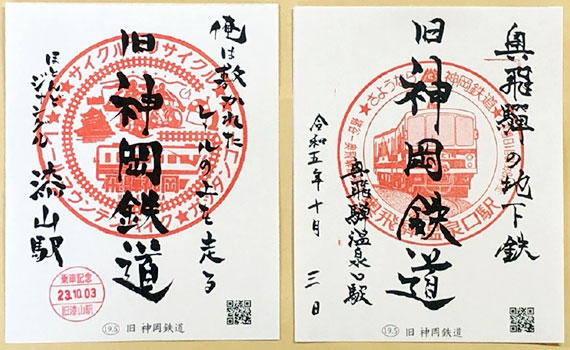 俺は敷かれた
レールの上を走る
旧 神岡鉄道
ほとんど
ジャングル
漆山駅
乗車記念
23.10.03
旧漆山駅
19.5 旧 神岡鉄道
奥飛騨の地下鉄
旧 神岡鉄道
奥飛騨温泉口駅
令和五年十月三日
さようなら 神岡鉄道
19.5 旧 神岡鉄道